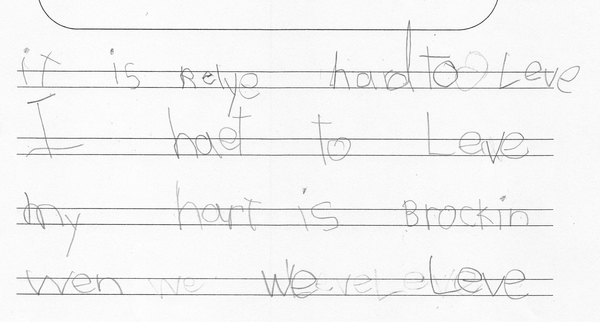 it is Relye hard to Leve
I haet to Leve
my hart is Brockin
wen We Leve